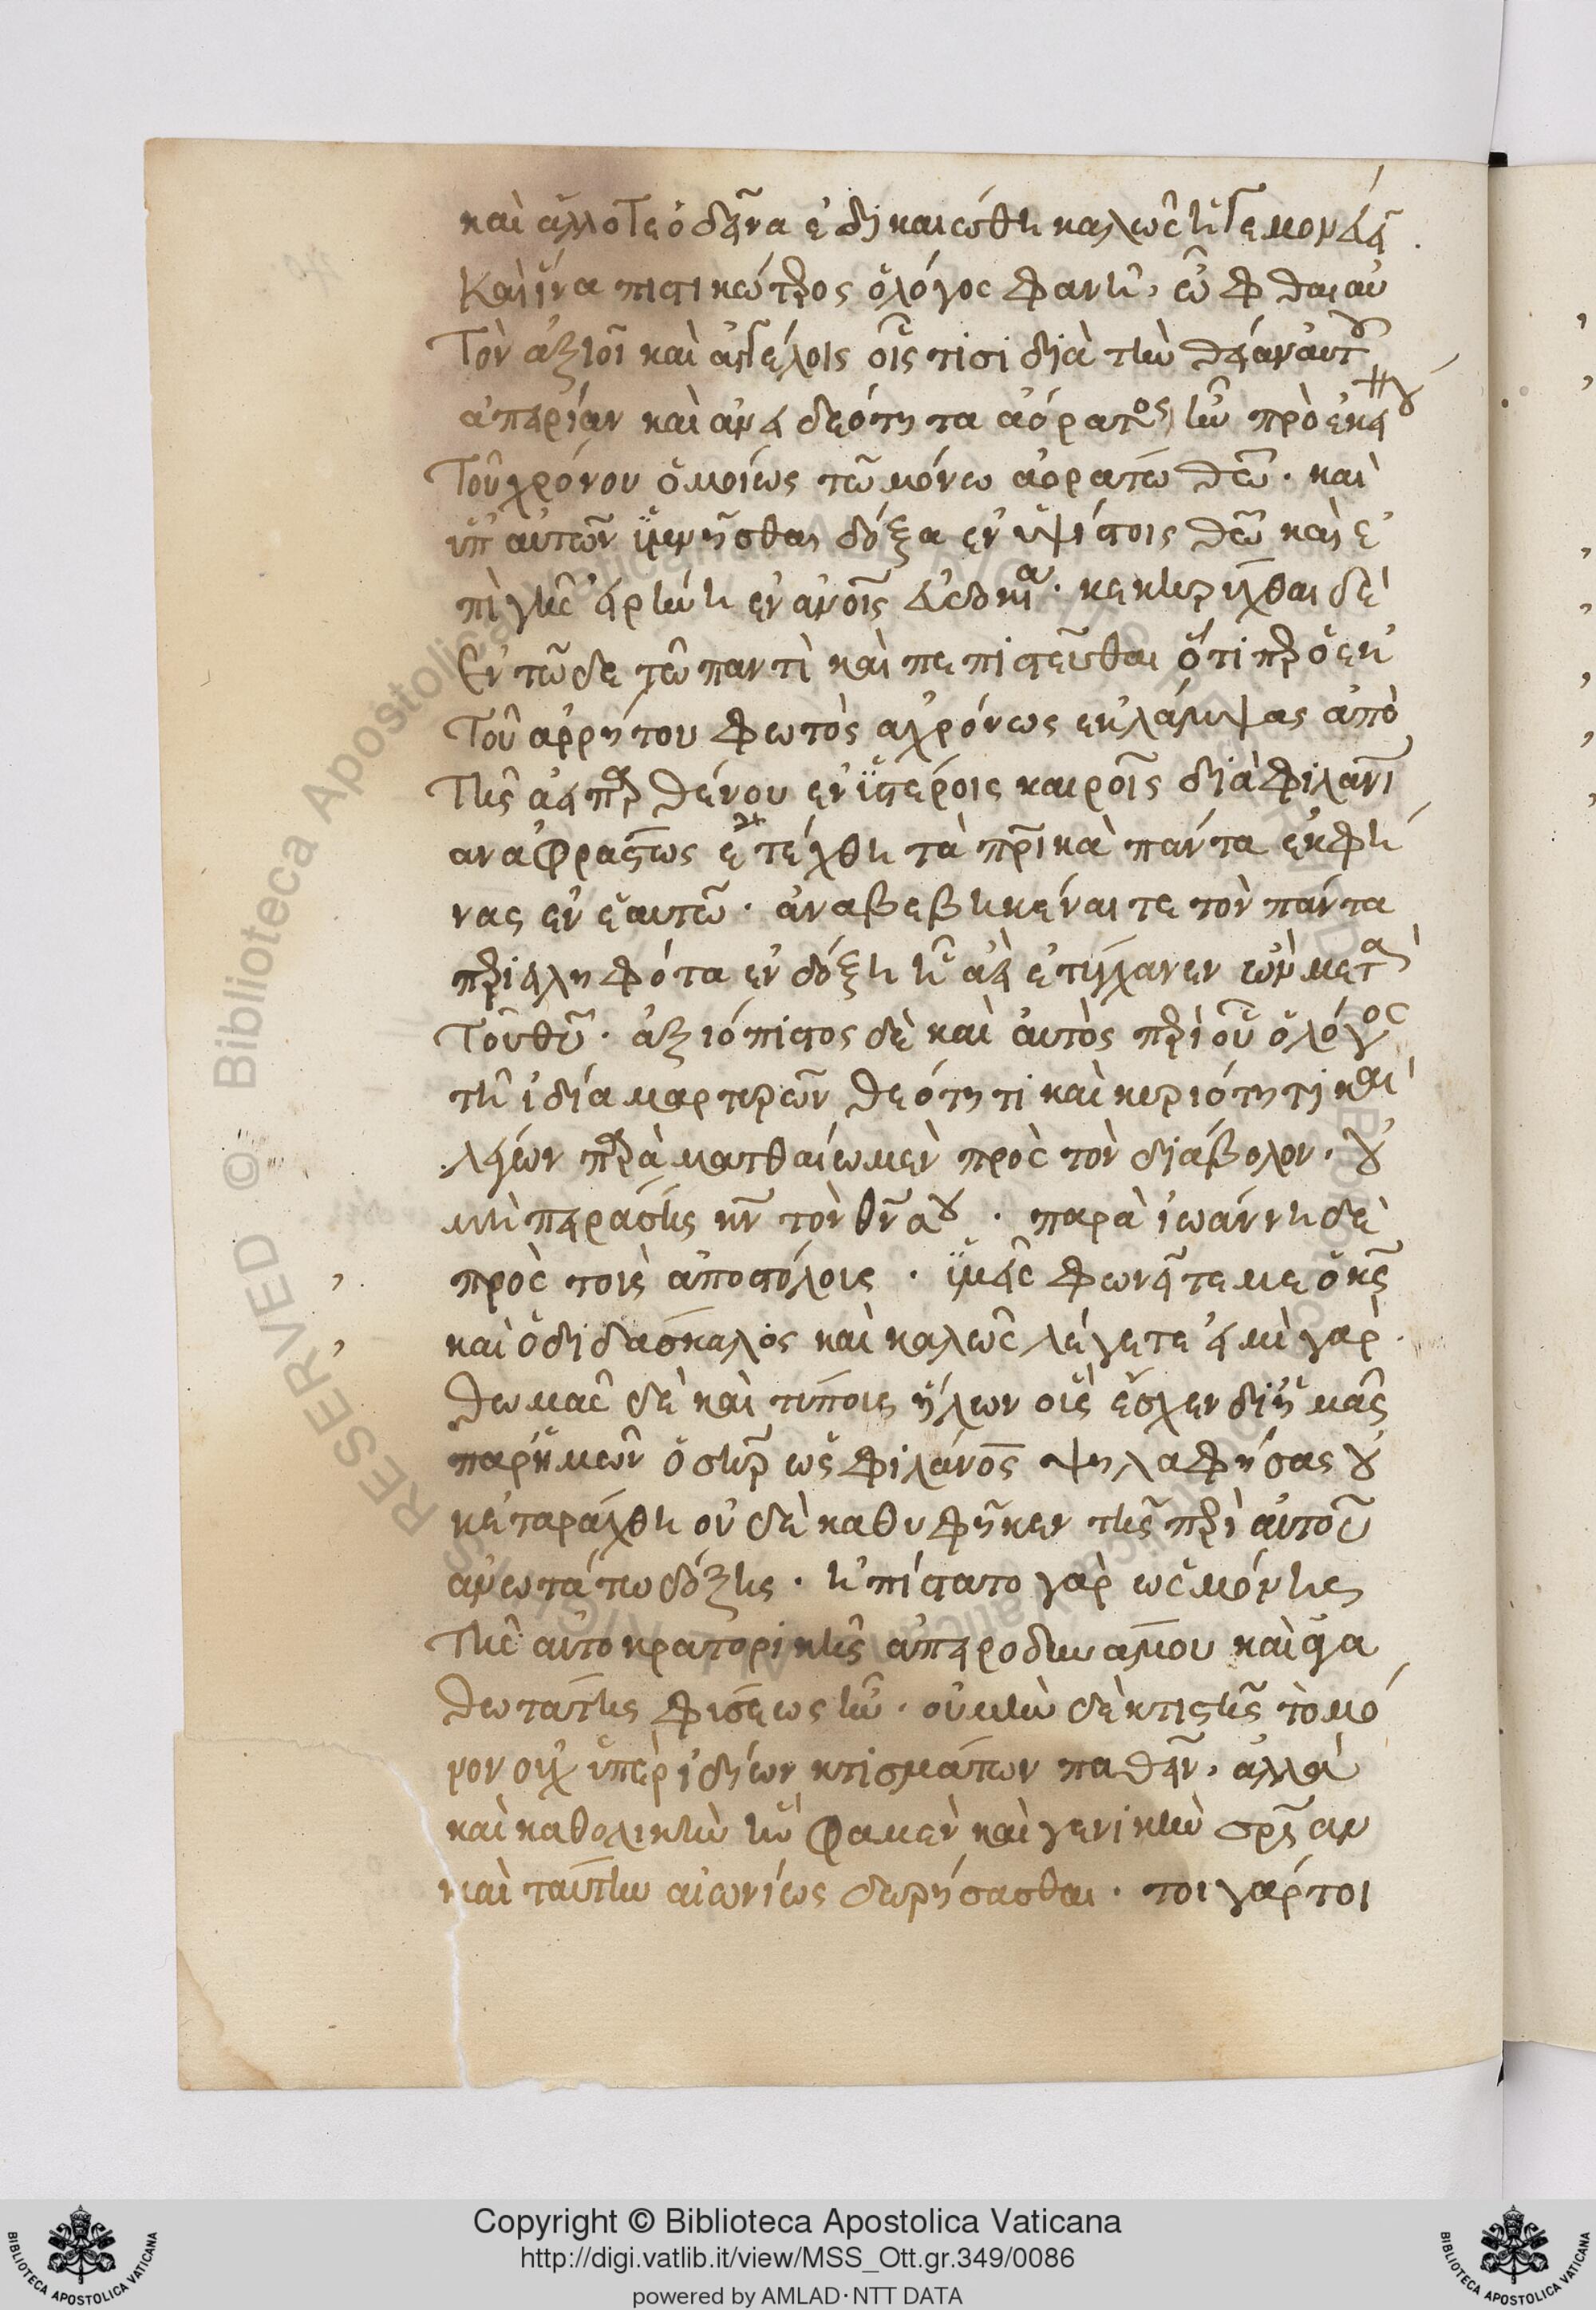 καὶ ἄλλοτε ὁ δεῖνα ἐδικαιώθη καλῶς ἡγεμονεύει.
Καὶ ἵνα πιστικώτερος ὁ λόγος φανῇ, ὤφθαι αὐ
τὸν ἀξιοῖ καὶ ἀγγέλοις οἷς τισι διὰ τὴν θείαν αὐτοῦ
ἀπειρίαν καὶ ἀνειδεότητα ἀόρατος ἦν πρὸ ἐκεί
του χρόνου ὁμοίως τῷ μόνῳ ἀοράτῳ θεῷ. καὶ
ὑπ' αὐτῶν ὑμνῆσθαι δόξα ἐν ὑψίστοις θεῷ καὶ ἐ
πὶ γῆς εἰρήνη ἐν ἀνοις εὐδοκία. κεκηρύχθαι δὲ
ἐν τῷδε τῷ παντὶ καὶ πεπιστεῦσθαι ὅτιπερ ὁ ἐκ
τοῦ ἀρρήτου φωτὸς ἀχρόνως ἐκλάμψας ἀπὸ
τῆς ἀειπαρθένου ἐν ὑστέροις καιροῖς διὰ φιλανίαν
ἀναφράστως ἐτέχθη τὰ πρικὰ πάντα ἐκφή
νας ἐν ἑαυτῷ. ἀναβεβηκέναι τε τὸν πάντα
περιειληφότα ἐν δόξῃ ᾗ ἀεὶ ἐτύγχανεν ὢν μετὰ
τοῦ θυ. ἀξιόπιστος δὲ καὶ αὐτὸς περὶ οὗ ὁ λόγος
τῇ ἰδίᾳ μαρτυρῶν θεότητι καὶ κυριότητι καὶ
λέγων παρὰ ματθαίῳ μὲν πρὸς τὸν διάβολον. οὐ
μὴ πειράσῃς κν τὸν θν σου. παρὰ ἰωάννῃ δὲ
πρὸς τοῖς ἀποστόλοις. ὑμεῖς φωνεῖτέ με ὁ κς
καὶ ὁ διδάσκαλος καὶ καλῶς λέγετε εἰμὶ γάρ.
θωμᾶς δὲ καὶ τύποις ἥλων οἷς ἔσχεν δι' ἡμᾶς
παρ' ἡμῶν ὁ σηρ ὡς φιλάνος ψηλαφήσας οὐ
κ' ἐταράχθη οὐδὲ καθυφῆκεν τῆς περὶ αὐτοῦ
ἀνωτάτω δόξης. ἠπίστατο γὰρ ὡς μόνης
τῆς αὐτοκρατορικῆς ἀπειροδυνάμου καὶ ἀγα
θωτάτης φύσεως ἦν. οὐ μὴν δὲ κτιστῆς τὸ μό
νον οὐχ ὑπὲρ ἰδίων κτισμάτων παθεῖν. ἀλλὰ
καὶ καθολικὴν ἥν φαμεν καὶ γενικὴν σριαν
καὶ ταύτην αἰωνίως δωρήσασθαι. τοιγάρτοι
RESERVED © Biblioteca Apostolica Vaticana
Copyright © Biblioteca Apostolica Vaticana
http://digi.vatlib.it/view/MSS_Ott.gr.349/0086
powered by AMLAD·NTT DATA
BIBLIOTECA APOSTOLICA VATICANA
BIBLIOTECA APOSTOLICA VATICANA